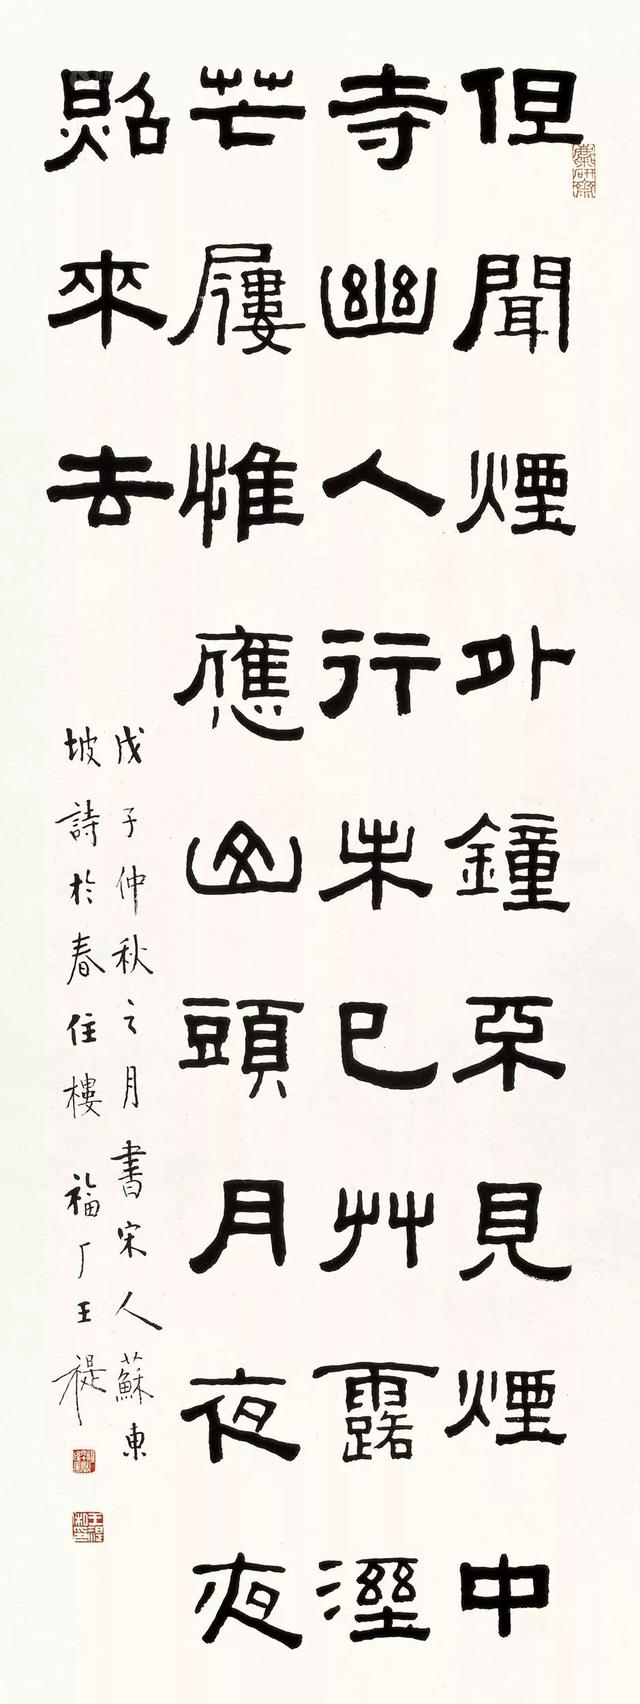 但聞煙外鐘不見煙中
寺幽人行未已艸露溼
芒屨惟應山頭月夜夜
照來去
戊子仲秋之月書宋人蘇東
坡詩於春住樓 福厂王禔
麋研齋
王禔私印